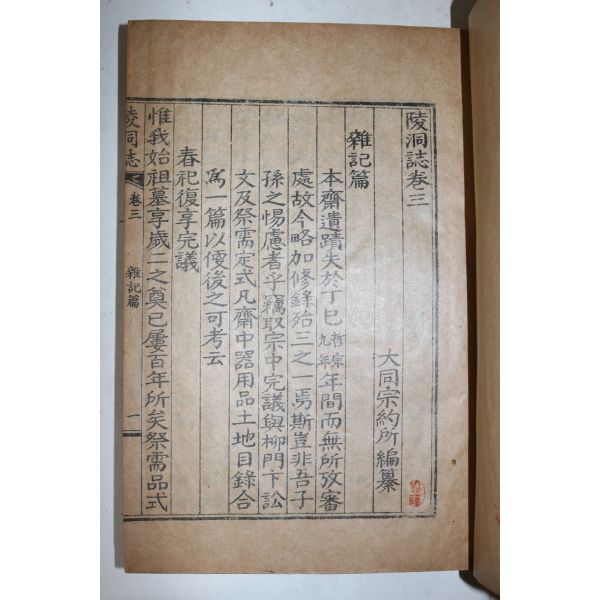 陵洞誌卷三
大同宗約所編纂
雜記篇
本齋遺蹟失於丁巳哲宗九年年間而無所攷審
處故今略加修錄殆三之一焉斯豈非吾子
孫之惕慮者乎竊取宗中完議與柳門卞訟
文及祭需定式凡齋中器用品土地目錄合
爲一篇以便後之可考云
春祀復享完議
惟我始祖墓享歲二之奠已屢百年所矣祭需品式
陵洞誌 卷三 雜記篇 一